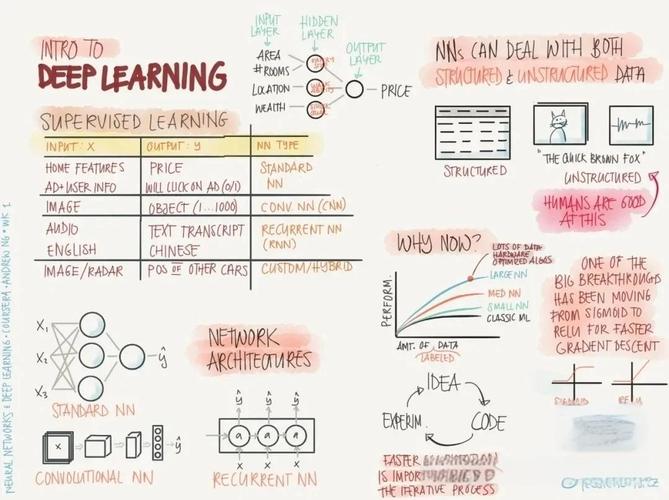 INTRO TO
DEEP LEARNING
INPUT LAYER
HIDDEN LAYER
OUTPUT LAYER
AREA
# ROOMS
LOCATION
WEALTH
PRICE
SUPERVISED LEARNING
INPUT: X OUTPUT: Y NN TYPE
HOME FEATURES PRICE STANDARD
AD+USER INFO WILL CLICK ON AD (0/1) NN
IMAGE OBJECT (1...1000) CONV. NN (CNN)
AUDIO TEXT TRANSCRIPT RECURRENT NN
ENGLISH CHINESE (RNN)
IMAGE/RADAR POS OF OTHER CARS CUSTOM/HYBRID
X₁
X₂
X₃
ŷ
STANDARD NN
X
ŷ
CONVOLUTIONAL NN
NETWORK
ARCHITECTURES
ŷ ŷ ŷ
a a a
X X X
RECURRENT NN
NNs CAN DEAL WITH BOTH
STRUCTURED & UNSTRUCTURED DATA
STRUCTURED
"THE QUICK BROWN FOX"
UNSTRUCTURED
HUMANS ARE GOOD
AT THIS
WHY NOW?
LOTS OF DATA
HARDWARE
OPTIMIZED ALGOS.
LARGE NN
MED NN
SMALL NN
CLASSIC ML
PERFORM.
AMT. OF DATA
LABELED
IDEA
CODE
EXPERIM.
FASTER
IS IMPOR
THE ITERATIVE PROCESS
ONE OF THE
BIG BREAKTHROUGHS
HAS BEEN MOVING
FROM SIGMOID TO
RELU FOR FASTER
GRADIENT DESCENT
SIGMOID
NEURAL NETWORKS & DEEP LEARNING · COURSERA · ANDREW NG · WK 1